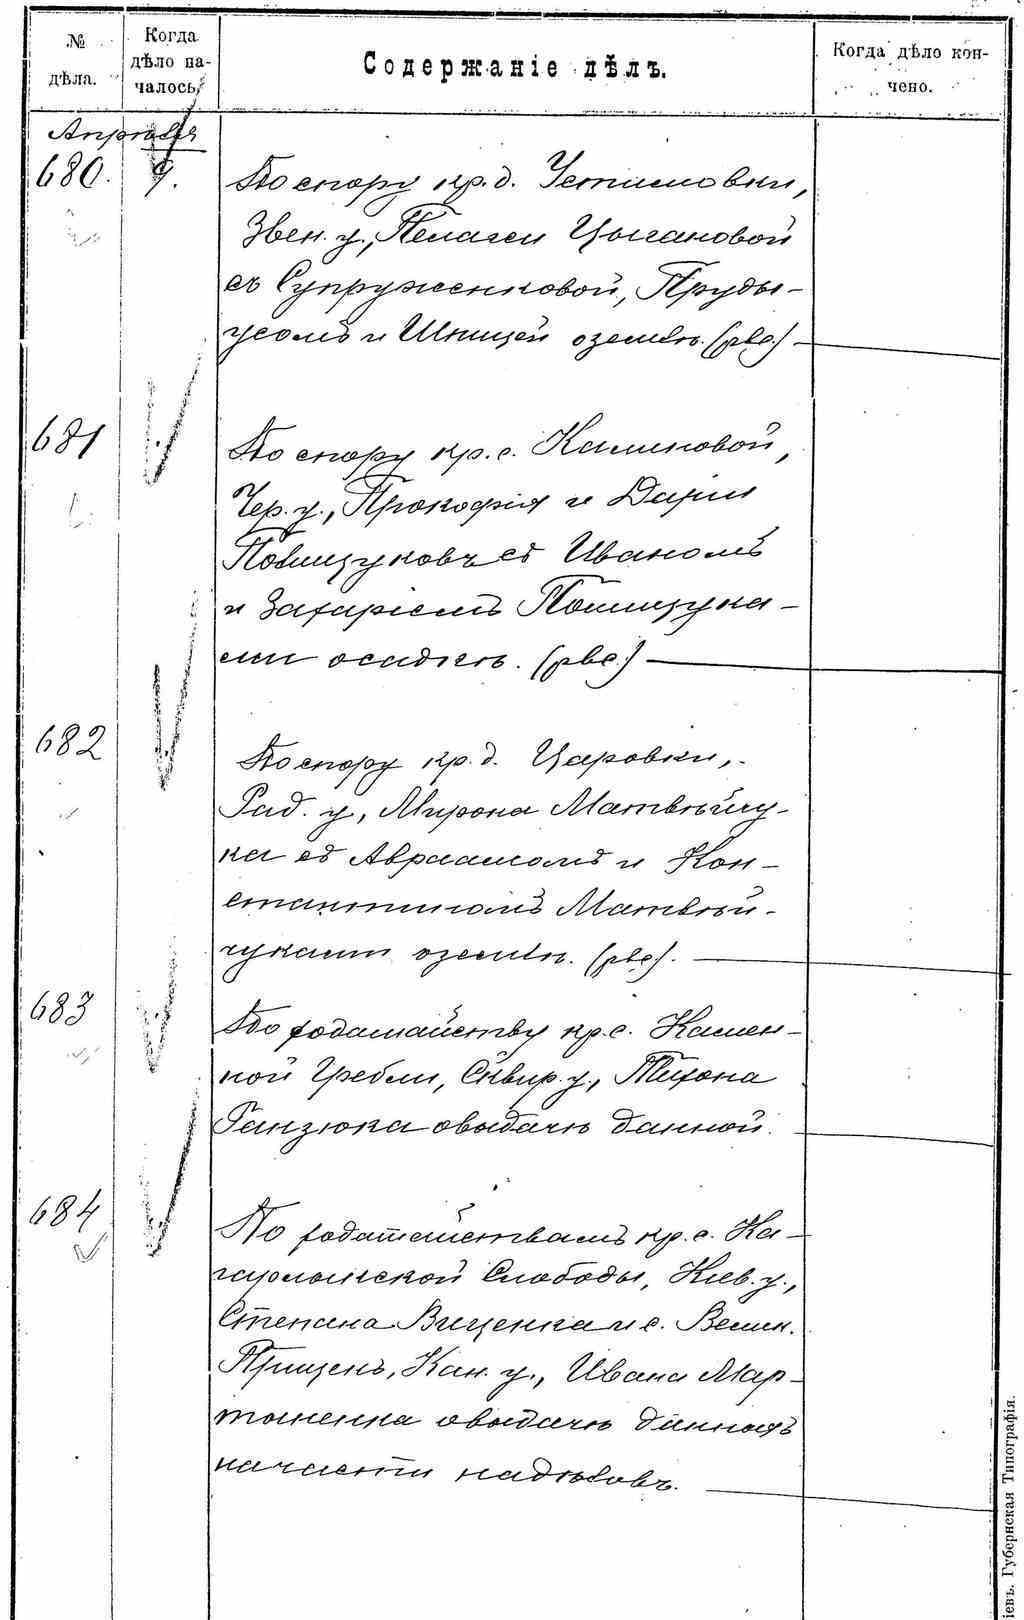 № дѣла.
Когда дѣло началось.
Содержаніе дѣлъ.
Когда дѣло кончено.
Апрѣля
680. 9. По спору кр. д. Устимовки,
Звен. у., Пелагеи Цыгановой
съ Супруженковой, Пруды-
усомъ и Шпицей о землѣ. (рвс.)
681 По спору кр. с. Калиновой,
Чер. у., Прокофія и Даріи
Полищуковъ съ Иваномъ
и Захаріемъ Полищука-
ми о садкѣ. (рвс.)
682 По спору кр. д. Царовки,
Рад. у., Мирона Матвѣйчу-
ка съ Авраамомъ и Кон-
стантиномъ Матвѣй-
чуками о землѣ. (рвс.).
683 По ходатайству кр. с. Камен-
ной Гребли, Сквир. у., Тихона
Ганзюка о выдачѣ данной.
684 По ходатайствамъ кр. с. Ка-
гарлыкской Слободы, Кіев. у.,
Степана Виценка и с. Велик.
Прицекъ, Кан. у., Ивана Мар-
тыненка о выдачѣ данныхъ
на части надѣловъ.
іевъ. Губернская Типографія.